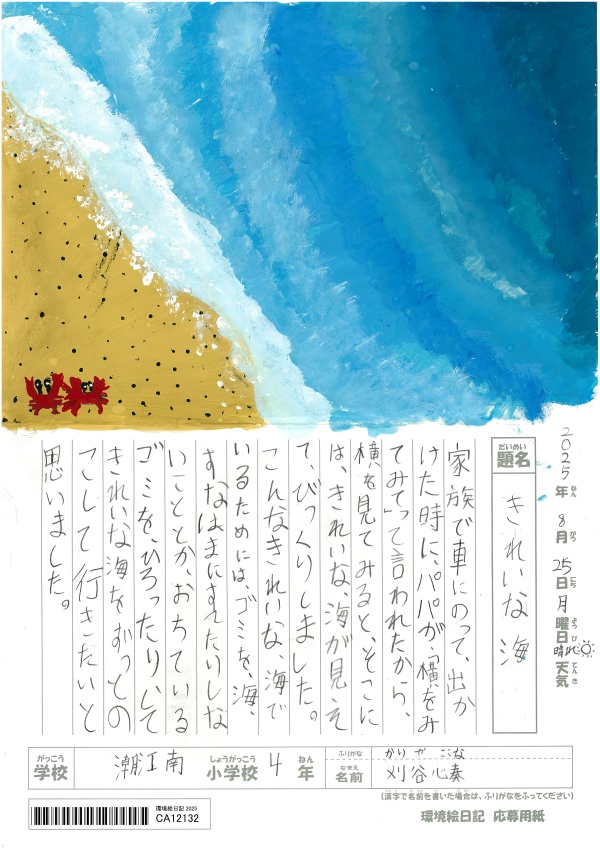 2025年ねん8月がつ25日にち月曜日ようび晴れ天気てんき
題名だいめい きれいな海
家族で車にのって、出か
けた時に、パパが、「横をみ
てみて」って言われたから、
横を見てみると、そこに
は、きれいな、海が見え
て、びっくりしました。
こんなきれいな、海で
いるためには、ゴミを、海、
すなはまにすてたりしな
いこととか、おちている
ゴミを、ひろったりいして
きれいな海をずっとの
こして行きたいと
思いました。
がっこう しょうがっこう ねん
学校 潮江南 小学校 4 年
ふりがな かりや ここな
なまえ
名前 刈谷心奏
(漢字で名前を書いた場合は、ふりがなをふってください)
環境絵日記 応募用紙
環境絵日記 2025
CA12132